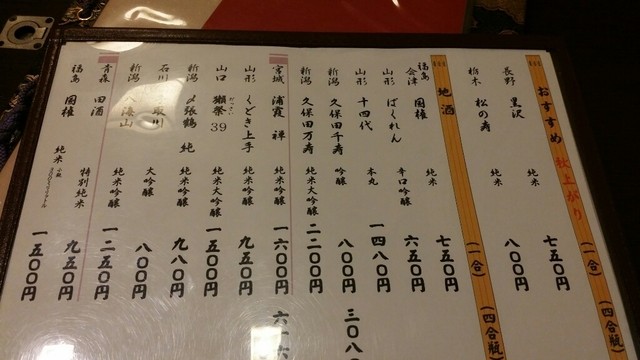 おすすめ 秋上がり (一合) (四合瓶)
長野 黒沢 純米 七五〇円
栃木 松の寿 純米 八〇〇円
地酒 (一合) (四合瓶)
福島 会津 国権 純米 七五〇円
山形 ばくれん 辛口吟醸 六五〇円
山形 十四代 本丸 一四八〇円
新潟 久保田千寿 吟醸 八〇〇円 三〇八
新潟 久保田万寿 純米大吟醸 二二〇〇円
宮城 浦霞 禅 純米吟醸 一六〇〇円 六一六
山形 くどき上手 純米吟醸 九五〇円
山口 獺祭 39 純米大吟醸 一五〇〇円
新潟 〆張鶴 純 純米吟醸 九八〇円
石川 取川 大吟醸
新潟 八海山 純米吟醸 八〇〇円
青森 田酒 特別純米 一二五〇円
福島 国権 純米 九五〇円
一五〇〇円